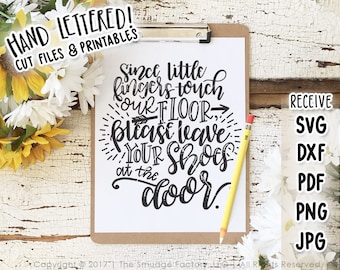 HAND LETTERED!
CUT FILES & PRINTABLES
Since little
fingers touch
our FLOOR
please leave
YOUR SHOES
at the
door.
RECEIVE
SVG
DXF
PDF
PNG
JPG
Copyright © 2017 | The Smudge Factory
All Rights Reserved.